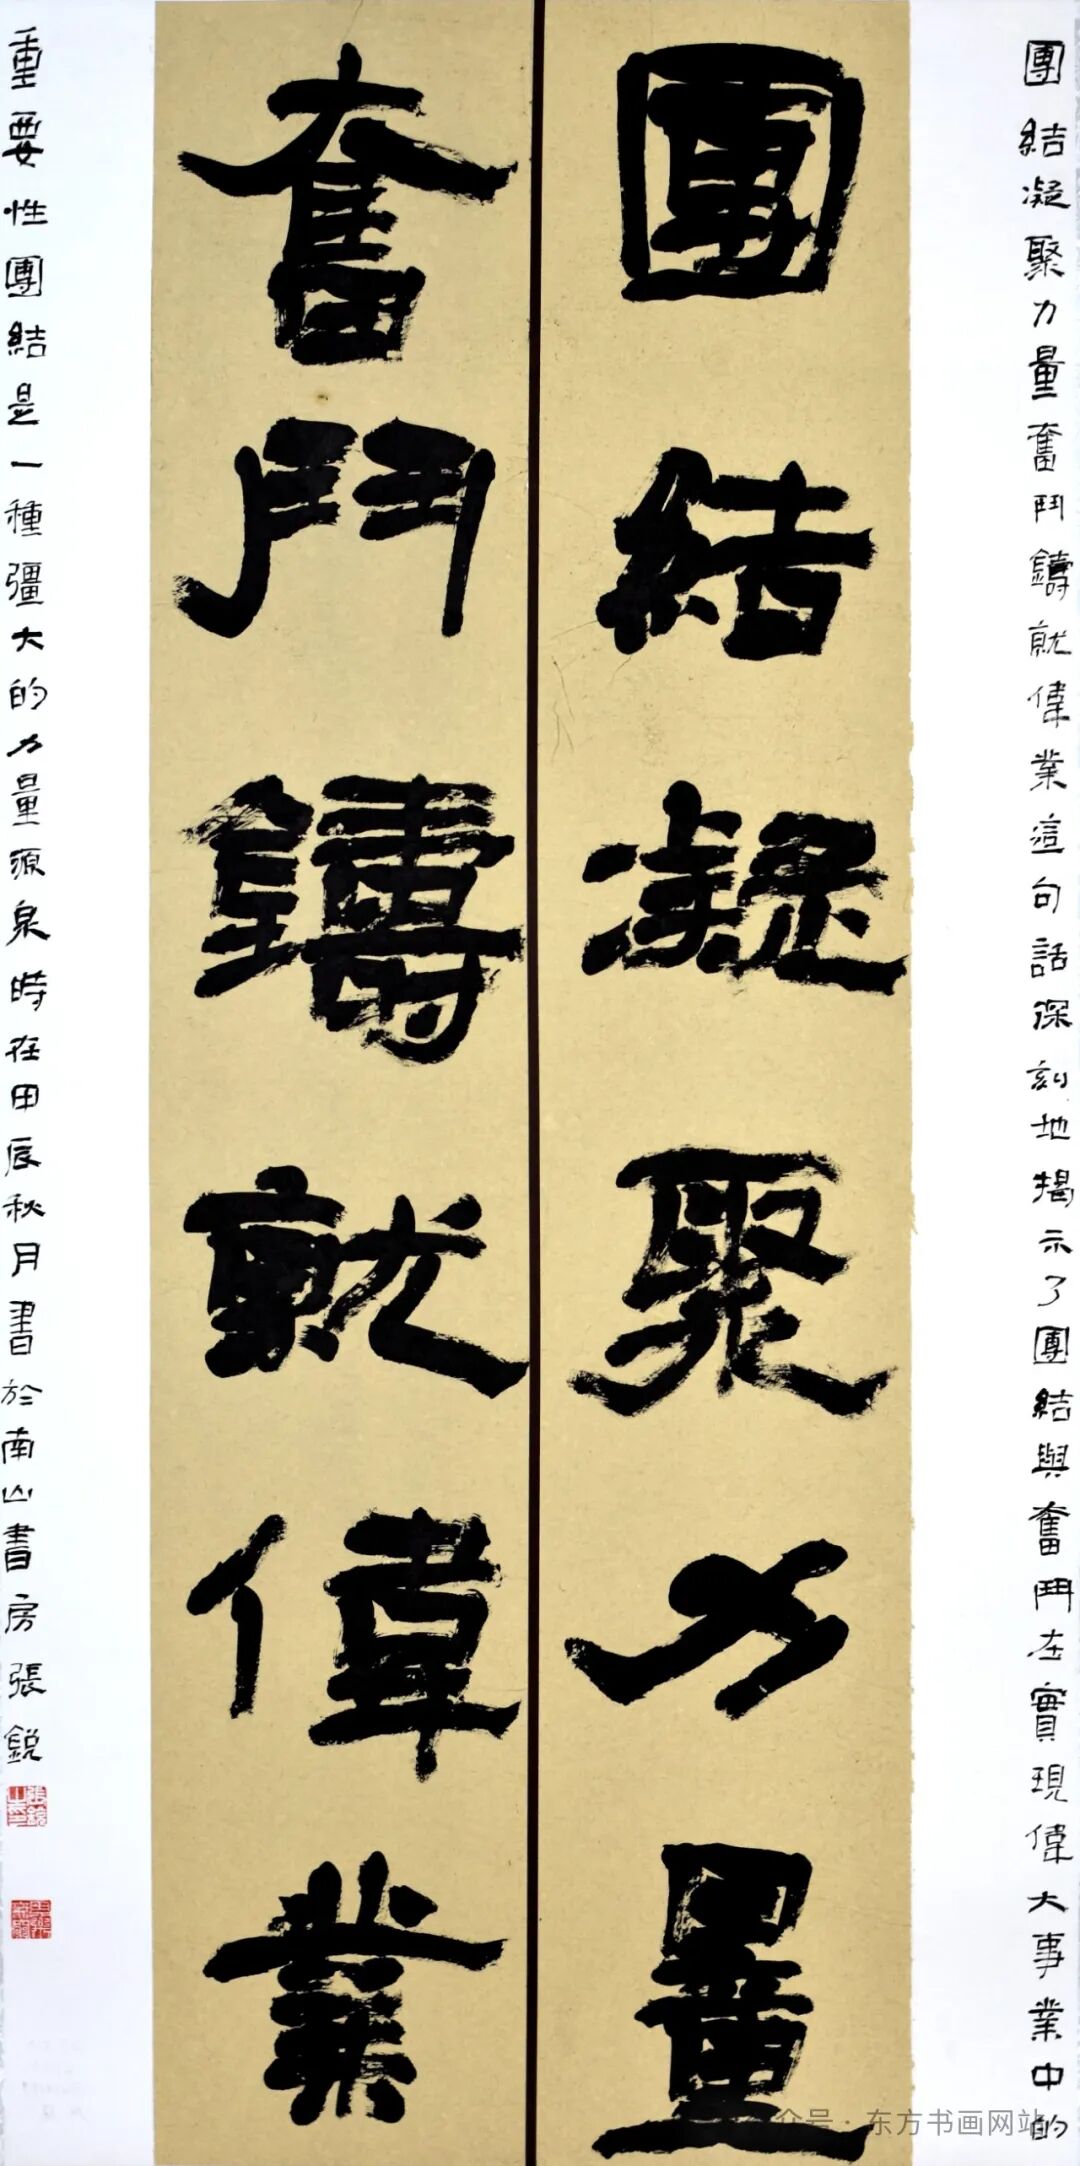 團結凝聚力量奮鬥鑄就偉業這句話深刻地揭示了團結與奮鬥在實現偉大事業中的
團結凝聚力量
奮鬥鑄就偉業
重要性團結是一種彊大的力量源泉時在甲辰秋月書於南山書房張銳
公众号·东方书画网站